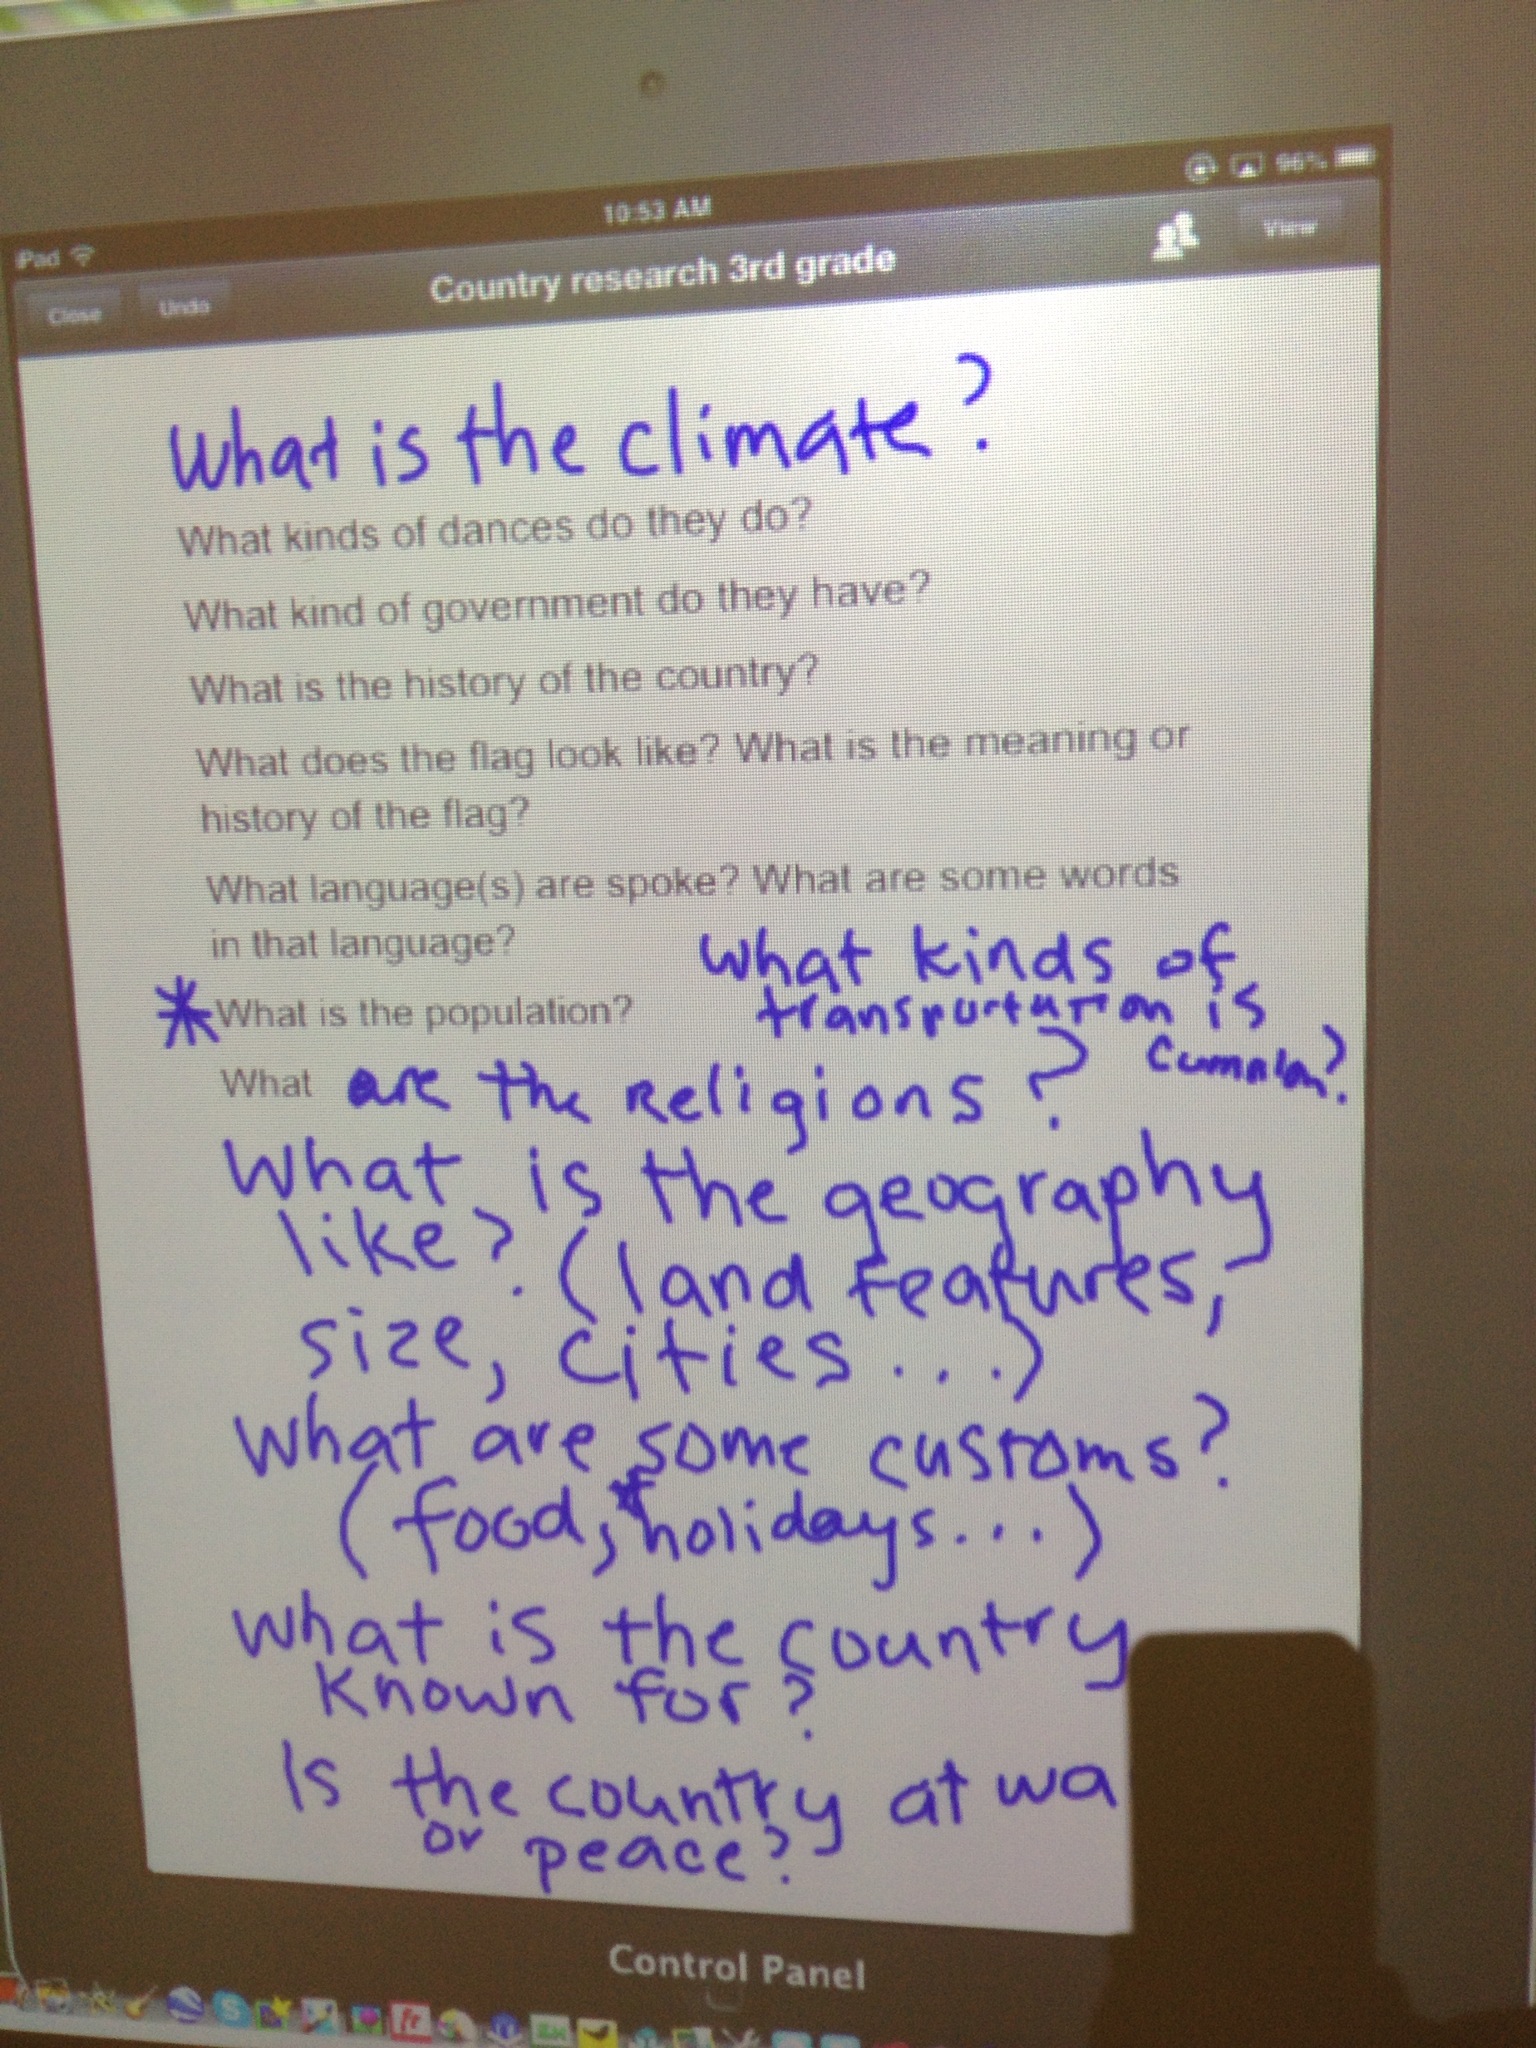 iPad
10:53 AM
96%
Close
Undo
Country research 3rd grade
View
What is the climate?
What kinds of dances do they do?
What kind of government do they have?
What is the history of the country?
What does the flag look like? What is the meaning or
history of the flag?
What language(s) are spoke? What are some words
in that language?
What kinds of
transportation is
common?
* What is the population?
What are the religions?
What is the geography
like? (land features,
size, cities...)
What are some customs?
(food, * holidays...)
What is the country
known for?
Is the country at wa
or peace?
Control Panel
S
fr